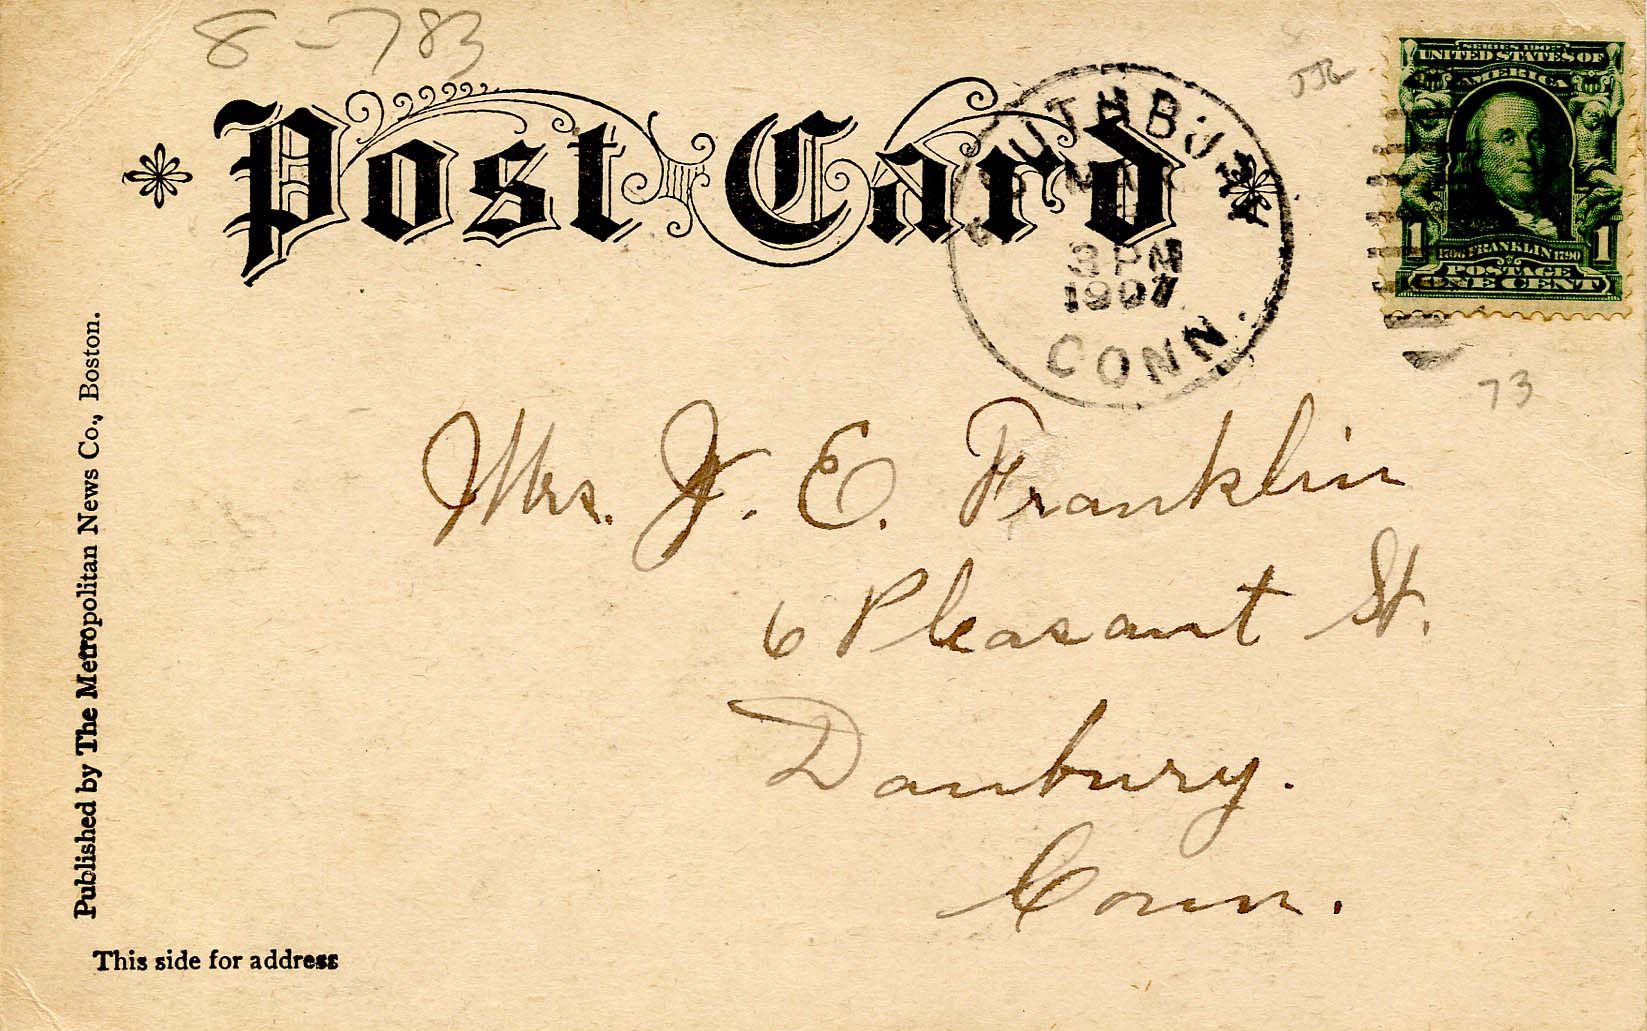 8-783
Post Card
SOUTHBURY
3 PM
1907
CONN.
SERIES 1902
UNITED STATES OF
AMERICA
1 1706 FRANKLIN 1790 1
POSTAGE
ONE CENT
73
Mrs. J. E. Franklin
6 Pleasant St.
Danbury.
Conn.
Published by The Metropolitan News Co., Boston.
This side for address